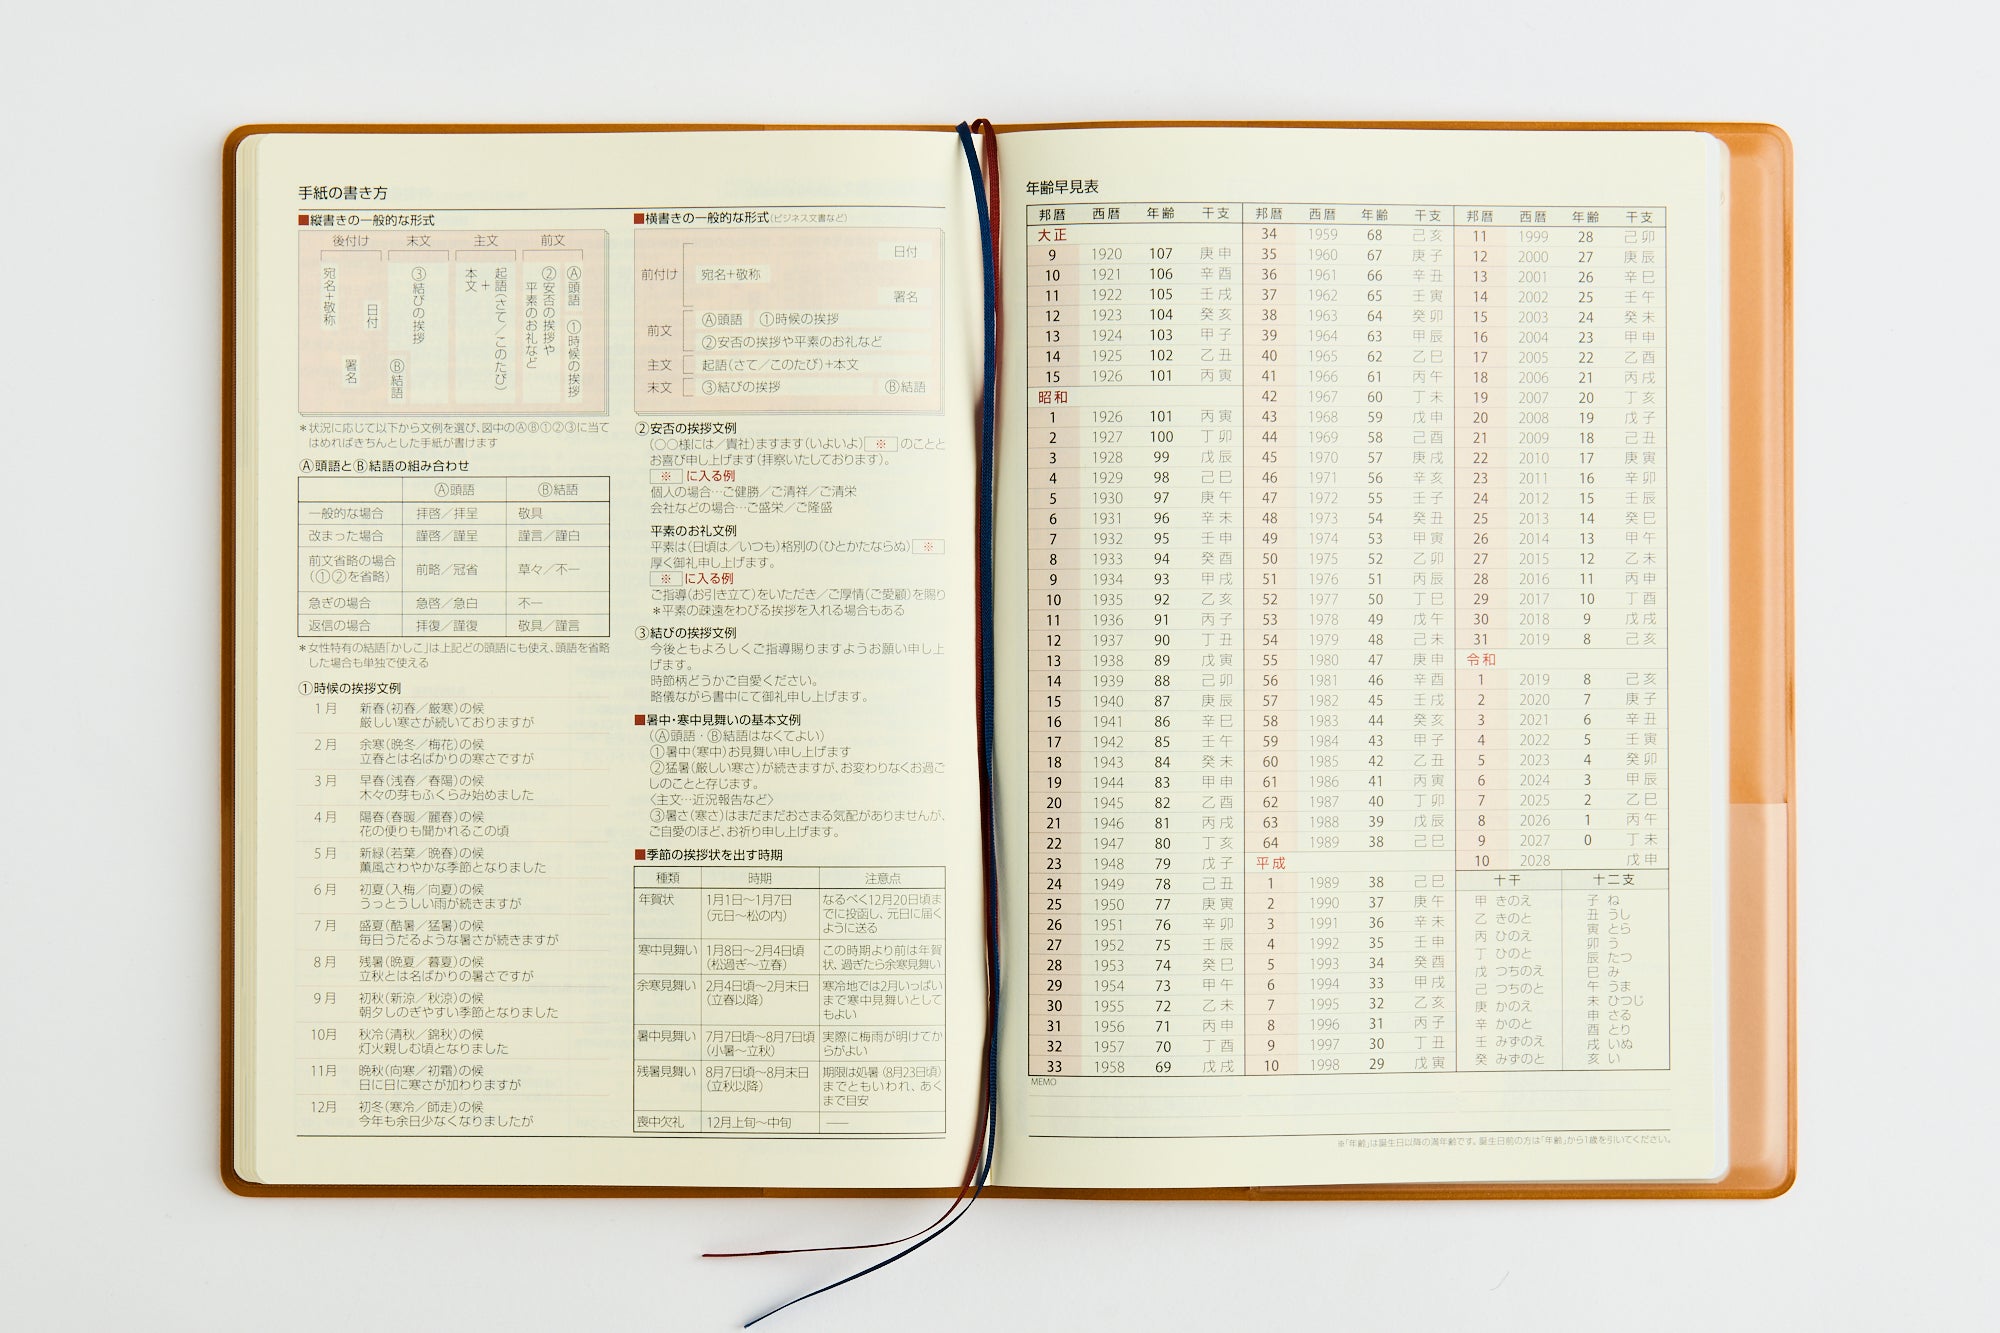 手紙の書き方
■縦書きの一般的な形式
後付け 末文 主文 前文
Ⓐ頭語 ①時候の挨拶
②安否の挨拶や
平素のお礼など
起語(さて/このたび)
+
本文
③結びの挨拶
Ⓑ結語
日付
署名
宛名+敬称
*状況に応じて以下から文例を選び、図中のⒶⒷ①②③に当て
はめればきちんとした手紙が書けます
Ⓐ頭語とⒷ結語の組み合わせ
Ⓐ頭語 Ⓑ結語
一般的な場合 拝啓/拝呈 敬具
改まった場合 謹啓/謹呈 謹言/謹白
前文省略の場合
(①②を省略) 前略/冠省 草々/不一
急ぎの場合 急啓/急白 不一
返信の場合 拝復/謹復 敬具/謹言
*女性特有の結語「かしこ」は上記どの頭語にも使え、頭語を省略
した場合も単独で使える
①時候の挨拶文例
1月 新春(初春/厳寒)の候
厳しい寒さが続いておりますが
2月 余寒(晩冬/梅花)の候
立春とは名ばかりの寒さですが
3月 早春(浅春/春陽)の候
木々の芽もふくらみ始めました
4月 陽春(春暖/麗春)の候
花の便りも聞かれるこの頃
5月 新緑(若葉/晩春)の候
薫風さわやかな季節となりました
6月 初夏(入梅/向夏)の候
うっとうしい雨が続きますが
7月 盛夏(酷暑/猛暑)の候
毎日うだるような暑さが続きますが
8月 残暑(晩夏/暮夏)の候
立秋とは名ばかりの暑さですが
9月 初秋(新涼/秋涼)の候
朝夕しのぎやすい季節となりました
10月 秋冷(清秋/錦秋)の候
灯火親しむ頃となりました
11月 晩秋(向寒/初霜)の候
日に日に寒さが加わりますが
12月 初冬(寒冷/師走)の候
今年も余日少なくなりましたが
■横書きの一般的な形式(ビジネス文書など)
日付
前付け 宛名+敬称
署名
前文 Ⓐ頭語 ①時候の挨拶
②安否の挨拶や平素のお礼など
主文 起語(さて/このたび)+本文
末文 ③結びの挨拶 Ⓑ結語
②安否の挨拶文例
(○○様には/貴社)ますます(いよいよ) ※ のことと
お喜び申し上げます(拝察いたしております)。
※ に入る例
個人の場合…ご健勝/ご清祥/ご清栄
会社などの場合…ご盛栄/ご隆盛
平素のお礼文例
平素は(日頃は/いつも)格別の(ひとかたならぬ) ※
厚く御礼申し上げます。
※ に入る例
ご指導(お引き立て)をいただき/ご厚情(ご愛顧)を賜り
*平素の疎遠をわびる挨拶を入れる場合もある
③結びの挨拶文例
今後ともよろしくご指導賜りますようお願い申し上
げます。
時節柄どうかご自愛ください。
略儀ながら書中にて御礼申し上げます。
■暑中・寒中見舞いの基本文例
(Ⓐ頭語・Ⓑ結語はなくてよい)
①暑中(寒中)お見舞い申し上げます
②猛暑(厳しい寒さ)が続きますが、お変わりなくお過ご
しのことと存じます。
〈主文…近況報告など〉
③暑さ(寒さ)はまだまだおさまる気配がありませんが、
ご自愛のほど、お祈り申し上げます。
■季節の挨拶状を出す時期
種類 時期 注意点
年賀状 1月1日〜1月7日 なるべく12月20日頃ま
(元日〜松の内) でに投函し、元日に届く
ように送る
寒中見舞い 1月8日〜2月4日頃 この時期より前は年賀
(松過ぎ〜立春) 状、過ぎたら余寒見舞い
余寒見舞い 2月4日頃〜2月末日 寒冷地では2月いっぱい
(立春以降) まで寒中見舞いとして
もよい
暑中見舞い 7月7日頃〜8月7日頃 実際に梅雨が明けてか
(小暑〜立秋) らがよい
残暑見舞い 8月7日頃〜8月末日 期限は処暑(8月23日頃)
(立秋以降) までともいわれ、あく
まで目安
喪中欠礼 12月上旬〜中旬 ——
年齢早見表
邦暦 西暦 年齢 干支
大正
9 1920 107 庚申
10 1921 106 辛酉
11 1922 105 壬戌
12 1923 104 癸亥
13 1924 103 甲子
14 1925 102 乙丑
15 1926 101 丙寅
昭和
1 1926 101 丙寅
2 1927 100 丁卯
3 1928 99 戊辰
4 1929 98 己巳
5 1930 97 庚午
6 1931 96 辛未
7 1932 95 壬申
8 1933 94 癸酉
9 1934 93 甲戌
10 1935 92 乙亥
11 1936 91 丙子
12 1937 90 丁丑
13 1938 89 戊寅
14 1939 88 己卯
15 1940 87 庚辰
16 1941 86 辛巳
17 1942 85 壬午
18 1943 84 癸未
19 1944 83 甲申
20 1945 82 乙酉
21 1946 81 丙戌
22 1947 80 丁亥
23 1948 79 戊子
24 1949 78 己丑
25 1950 77 庚寅
26 1951 76 辛卯
27 1952 75 壬辰
28 1953 74 癸巳
29 1954 73 甲午
30 1955 72 乙未
31 1956 71 丙申
32 1957 70 丁酉
33 1958 69 戊戌
邦暦 西暦 年齢 干支
34 1959 68 己亥
35 1960 67 庚子
36 1961 66 辛丑
37 1962 65 壬寅
38 1963 64 癸卯
39 1964 63 甲辰
40 1965 62 乙巳
41 1966 61 丙午
42 1967 60 丁未
43 1968 59 戊申
44 1969 58 己酉
45 1970 57 庚戌
46 1971 56 辛亥
47 1972 55 壬子
48 1973 54 癸丑
49 1974 53 甲寅
50 1975 52 乙卯
51 1976 51 丙辰
52 1977 50 丁巳
53 1978 49 戊午
54 1979 48 己未
55 1980 47 庚申
56 1981 46 辛酉
57 1982 45 壬戌
58 1983 44 癸亥
59 1984 43 甲子
60 1985 42 乙丑
61 1986 41 丙寅
62 1987 40 丁卯
63 1988 39 戊辰
64 1989 38 己巳
平成
1 1989 38 己巳
2 1990 37 庚午
3 1991 36 辛未
4 1992 35 壬申
5 1993 34 癸酉
6 1994 33 甲戌
7 1995 32 乙亥
8 1996 31 丙子
9 1997 30 丁丑
10 1998 29 戊寅
邦暦 西暦 年齢 干支
11 1999 28 己卯
12 2000 27 庚辰
13 2001 26 辛巳
14 2002 25 壬午
15 2003 24 癸未
16 2004 23 甲申
17 2005 22 乙酉
18 2006 21 丙戌
19 2007 20 丁亥
20 2008 19 戊子
21 2009 18 己丑
22 2010 17 庚寅
23 2011 16 辛卯
24 2012 15 壬辰
25 2013 14 癸巳
26 2014 13 甲午
27 2015 12 乙未
28 2016 11 丙申
29 2017 10 丁酉
30 2018 9 戊戌
31 2019 8 己亥
令和
1 2019 8 己亥
2 2020 7 庚子
3 2021 6 辛丑
4 2022 5 壬寅
5 2023 4 癸卯
6 2024 3 甲辰
7 2025 2 乙巳
8 2026 1 丙午
9 2027 0 丁未
10 2028 戊申
十干
甲 きのえ
乙 きのと
丙 ひのえ
丁 ひのと
戊 つちのえ
己 つちのと
庚 かのえ
辛 かのと
壬 みずのえ
癸 みずのと
十二支
子 ね
丑 うし
寅 とら
卯 う
辰 たつ
巳 み
午 うま
未 ひつじ
申 さる
酉 とり
戌 いぬ
亥 い
MEMO
※「年齢」は誕生日以降の満年齢です。誕生日前の方は「年齢」から1歳を引いてください。